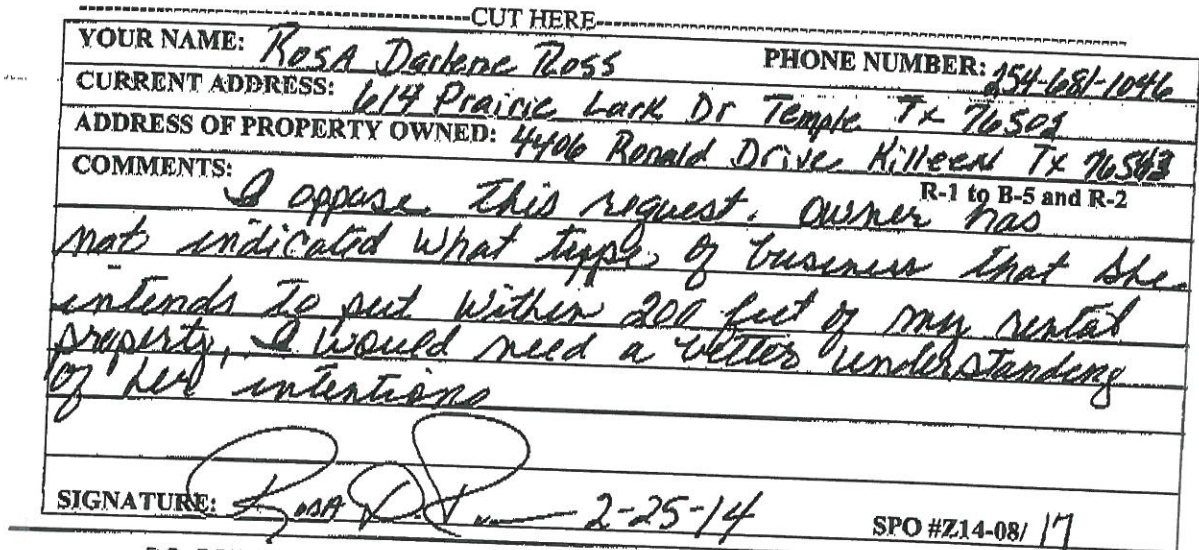 CUT HERE
YOUR NAME: Rosa Darlene Ross PHONE NUMBER: 254-681-1046
CURRENT ADDRESS: 614 Prairie Lark Dr Temple Tx 76502
ADDRESS OF PROPERTY OWNED: 4406 Ronald Drive Killeen Tx 76543
COMMENTS: R-1 to B-5 and R-2
I oppose this request. Owner has
not indicated what type of business that she
intends to put within 200 feet of my rental
property, I would need a better understanding
of her intentions
SIGNATURE: Rosa D. R 2-25-14 SPO #Z14-08/ 17